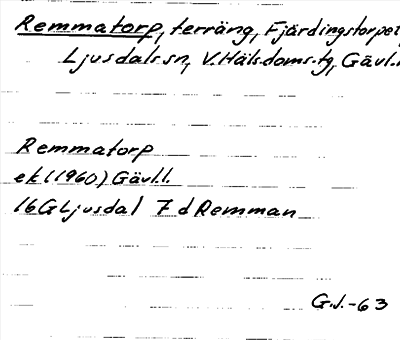 Remmatorp, terräng, Fjärdingstorpet,
Ljusdals sn, V. Häls. doms. tg, Gävl.
Remmatorp
ek (1960) Gävl. l.
16G Ljusdal 7d Remman
G.J.-63